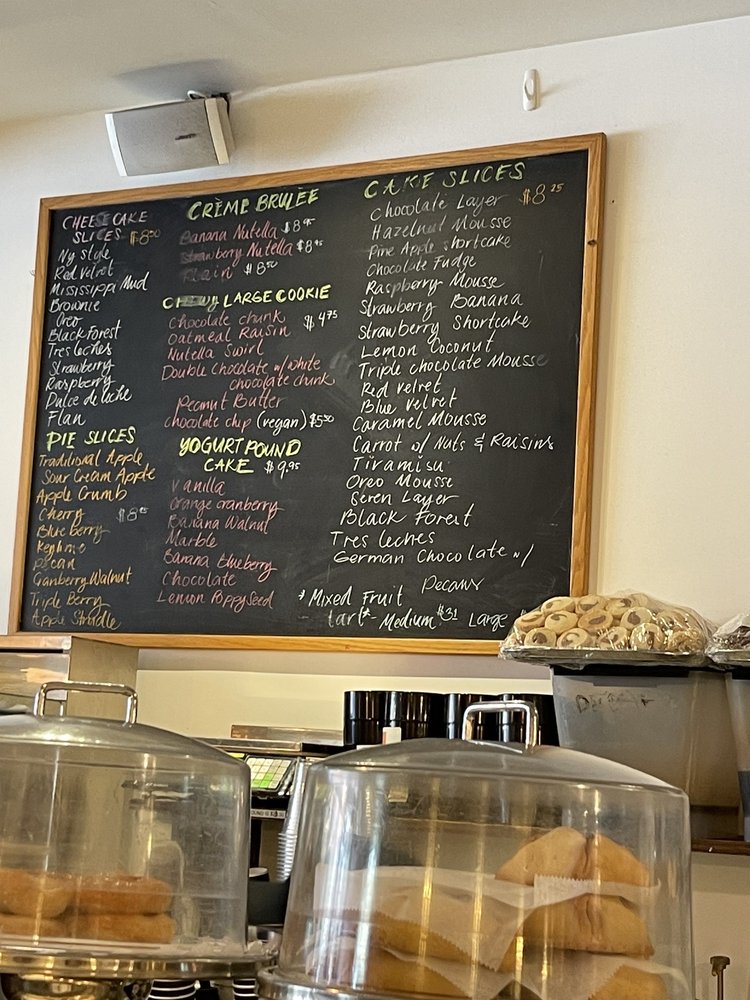 CHEESECAKE
SLICES $8.50
Ny style
Red velvet
Mississippi Mud
Brownie
Oreo
Black Forest
Tres leches
Strawberry
Raspberry
Dulce de leche
Flan
PIE SLICES
Traditional Apple
Sour Cream Apple
Apple Crumb
Cherry
Blueberry
Keylime
pecan
Cranberry Walnut
Triple Berry
Apple Strudle
CRÈME BRULÈE
Banana Nutella $8.95
Strawberry Nutella $8.95
Plain $8.50
CHEWY LARGE COOKIE
Chocolate chunk $4.75
Oatmeal Raisin
Nutella Swirl
Double Chocolate w/ white
chocolate chunk
Peanut Butter
chocolate chip (vegan) $5.50
YOGURT POUND
CAKE $9.95
Vanilla
Orange cranberry
Banana Walnut
Marble
Banana blueberry
Chocolate
Lemon Poppy Seed
CAKE SLICES
Chocolate Layer $8.25
Hazelnut Mousse
Pine Apple shortcake
Chocolate Fudge
Raspberry Mousse
Strawberry Banana
Strawberry Shortcake
Lemon Coconut
Triple chocolate Mousse
Red velvet
Blue velvet
Caramel Mousse
Carrot w/ Nuts & Raisins
Tiramisu
Oreo Mousse
Seven Layer
Black Forest
Tres leches
German Chocolate w/
Pecans
* Mixed Fruit
tart* - Medium $31 Large